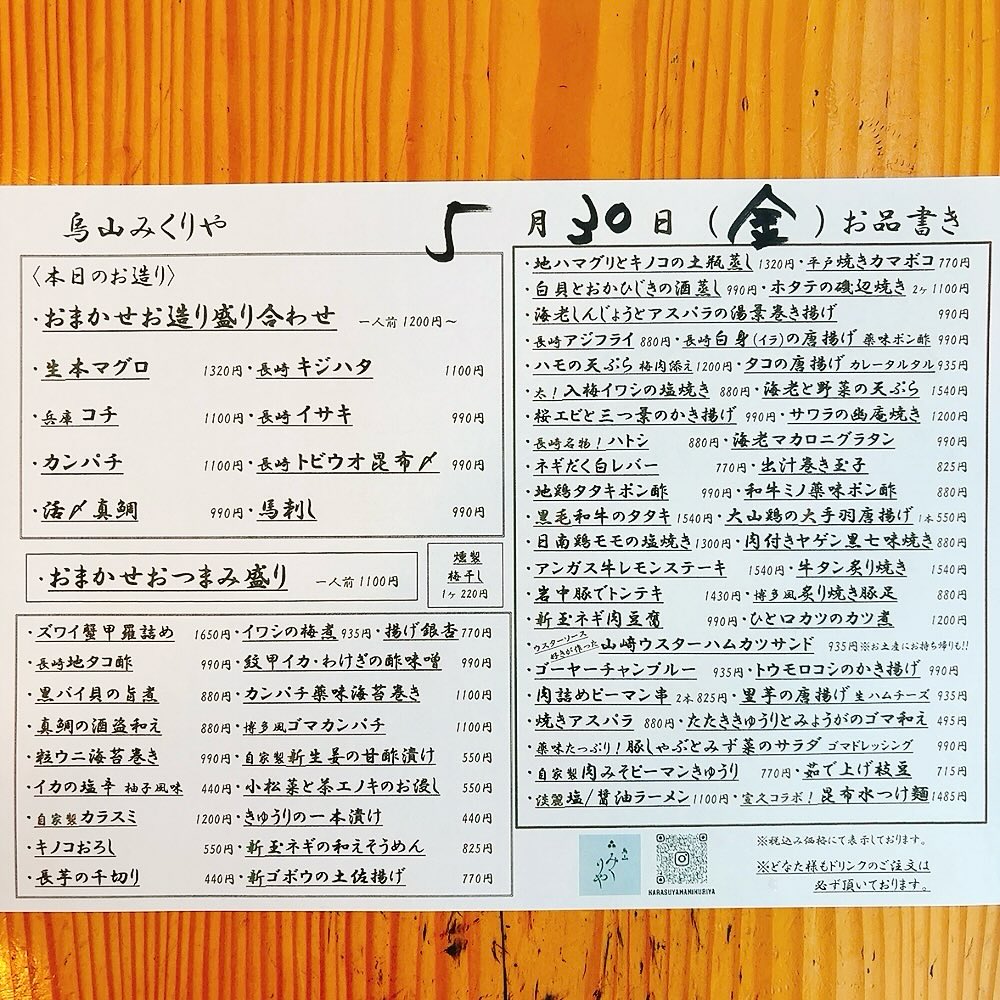 烏山みくりや 5月30日(金)お品書き
〈本日のお造り〉
・おまかせお造り盛り合わせ 一人前1200円〜
・生本マグロ 1320円・長崎キジハタ 1100円
・兵庫コチ 1100円・長崎イサキ 990円
・カンパチ 1100円・長崎トビウオ昆布〆 990円
・活〆真鯛 990円・馬刺し 990円
・おまかせおつまみ盛り 一人前1100円
燻製
梅干し
1ヶ220円
・ズワイ蟹甲羅詰め 1650円・イワシの梅煮 935円・揚げ銀杏 770円
・長崎地タコ酢 990円・紋甲イカ・わけぎの酢味噌 990円
・黒バイ貝の旨煮 880円・カンパチ薬味海苔巻き 1100円
・真鯛の酒盗和え 880円・博多風ゴマカンパチ 1100円
・粒ウニ海苔巻き 990円・自家製新生姜の甘酢漬け 550円
・イカの塩辛 柚子風味 440円・小松菜と茶エノキのお浸し 550円
・自家製カラスミ 1200円・きゅうりの一本漬け 440円
・キノコおろし 550円・新玉ネギの和えそうめん 825円
・長芋の千切り 440円・新ゴボウの土佐揚げ 770円
・地ハマグリとキノコの土瓶蒸し 1320円・平戸焼きカマボコ 770円
・白貝とおかひじきの酒蒸し 990円・ホタテの磯辺焼き 2ヶ1100円
・海老しんじょうとアスパラの湯葉巻き揚げ 990円
・長崎アジフライ 880円・長崎白身(イラ)の唐揚げ 薬味ポン酢 990円
・ハモの天ぷら 梅肉添え 1200円・タコの唐揚げ カレータルタル 935円
・太!入梅イワシの塩焼き 880円・海老と野菜の天ぷら 1540円
・桜エビと三つ葉のかき揚げ 990円・サワラの幽庵焼き 1200円
・長崎名物!ハトシ 880円・海老マカロニグラタン 990円
・ネギだく白レバー 770円・出汁巻き玉子 825円
・地鶏タタキポン酢 990円・和牛ミノ薬味ポン酢 880円
・黒毛和牛のタタキ 1540円・大山鶏の大手羽唐揚げ 1本550円
・日南鶏モモの塩焼き 1300円・肉付きヤゲン黒七味焼き 880円
・アンガス牛レモンステーキ 1540円・牛タン炙り焼き 1540円
・岩中豚でトンテキ 1430円・博多風炙り焼き豚足 880円
・新玉ネギ肉豆腐 990円・ひと口カツのカツ煮 1200円
・ウスターソース好きが作った 山﨑ウスターハムカツサンド 935円※お土産にお持ち帰りも!!
・ゴーヤーチャンプルー 935円・トウモロコシのかき揚げ 990円
・肉詰めピーマン串 2本825円・里芋の唐揚げ 生ハムチーズ 935円
・焼きアスパラ 880円・たたききゅうりとみょうがのゴマ和え 495円
・薬味たっぷり!豚しゃぶとみず菜のサラダ ゴマドレッシング 990円
・自家製肉みそピーマンきゅうり 770円・茹で上げ枝豆 715円
・淡麗塩/醤油ラーメン 1100円・宣久コラボ!昆布水つけ麺 1485円
みくりや
KARASUYAMAMIKURIYA
※税込み価格にて表示しております。
※どなた様もドリンクのご注文は
必ず頂いております。